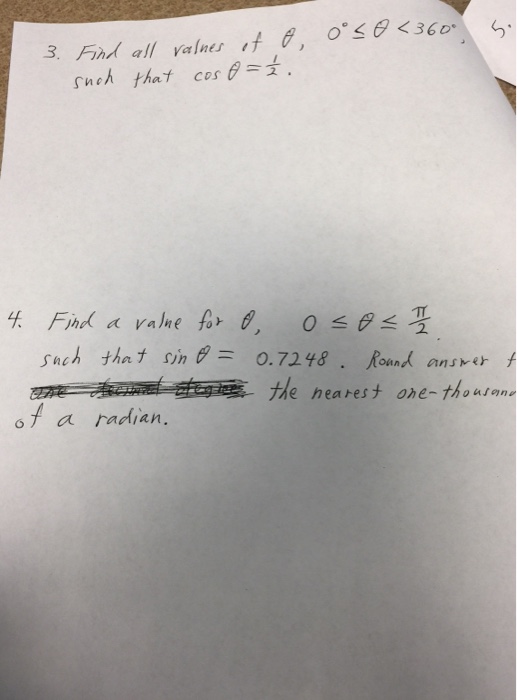 3. Find all values of θ, 0° ≤ θ < 360°,
such that cos θ = 1/2.
4. Find a value for θ, 0 ≤ θ ≤ π/2
such that sin θ = 0.7248. Round answer
the nearest one-thousand
of a radian.